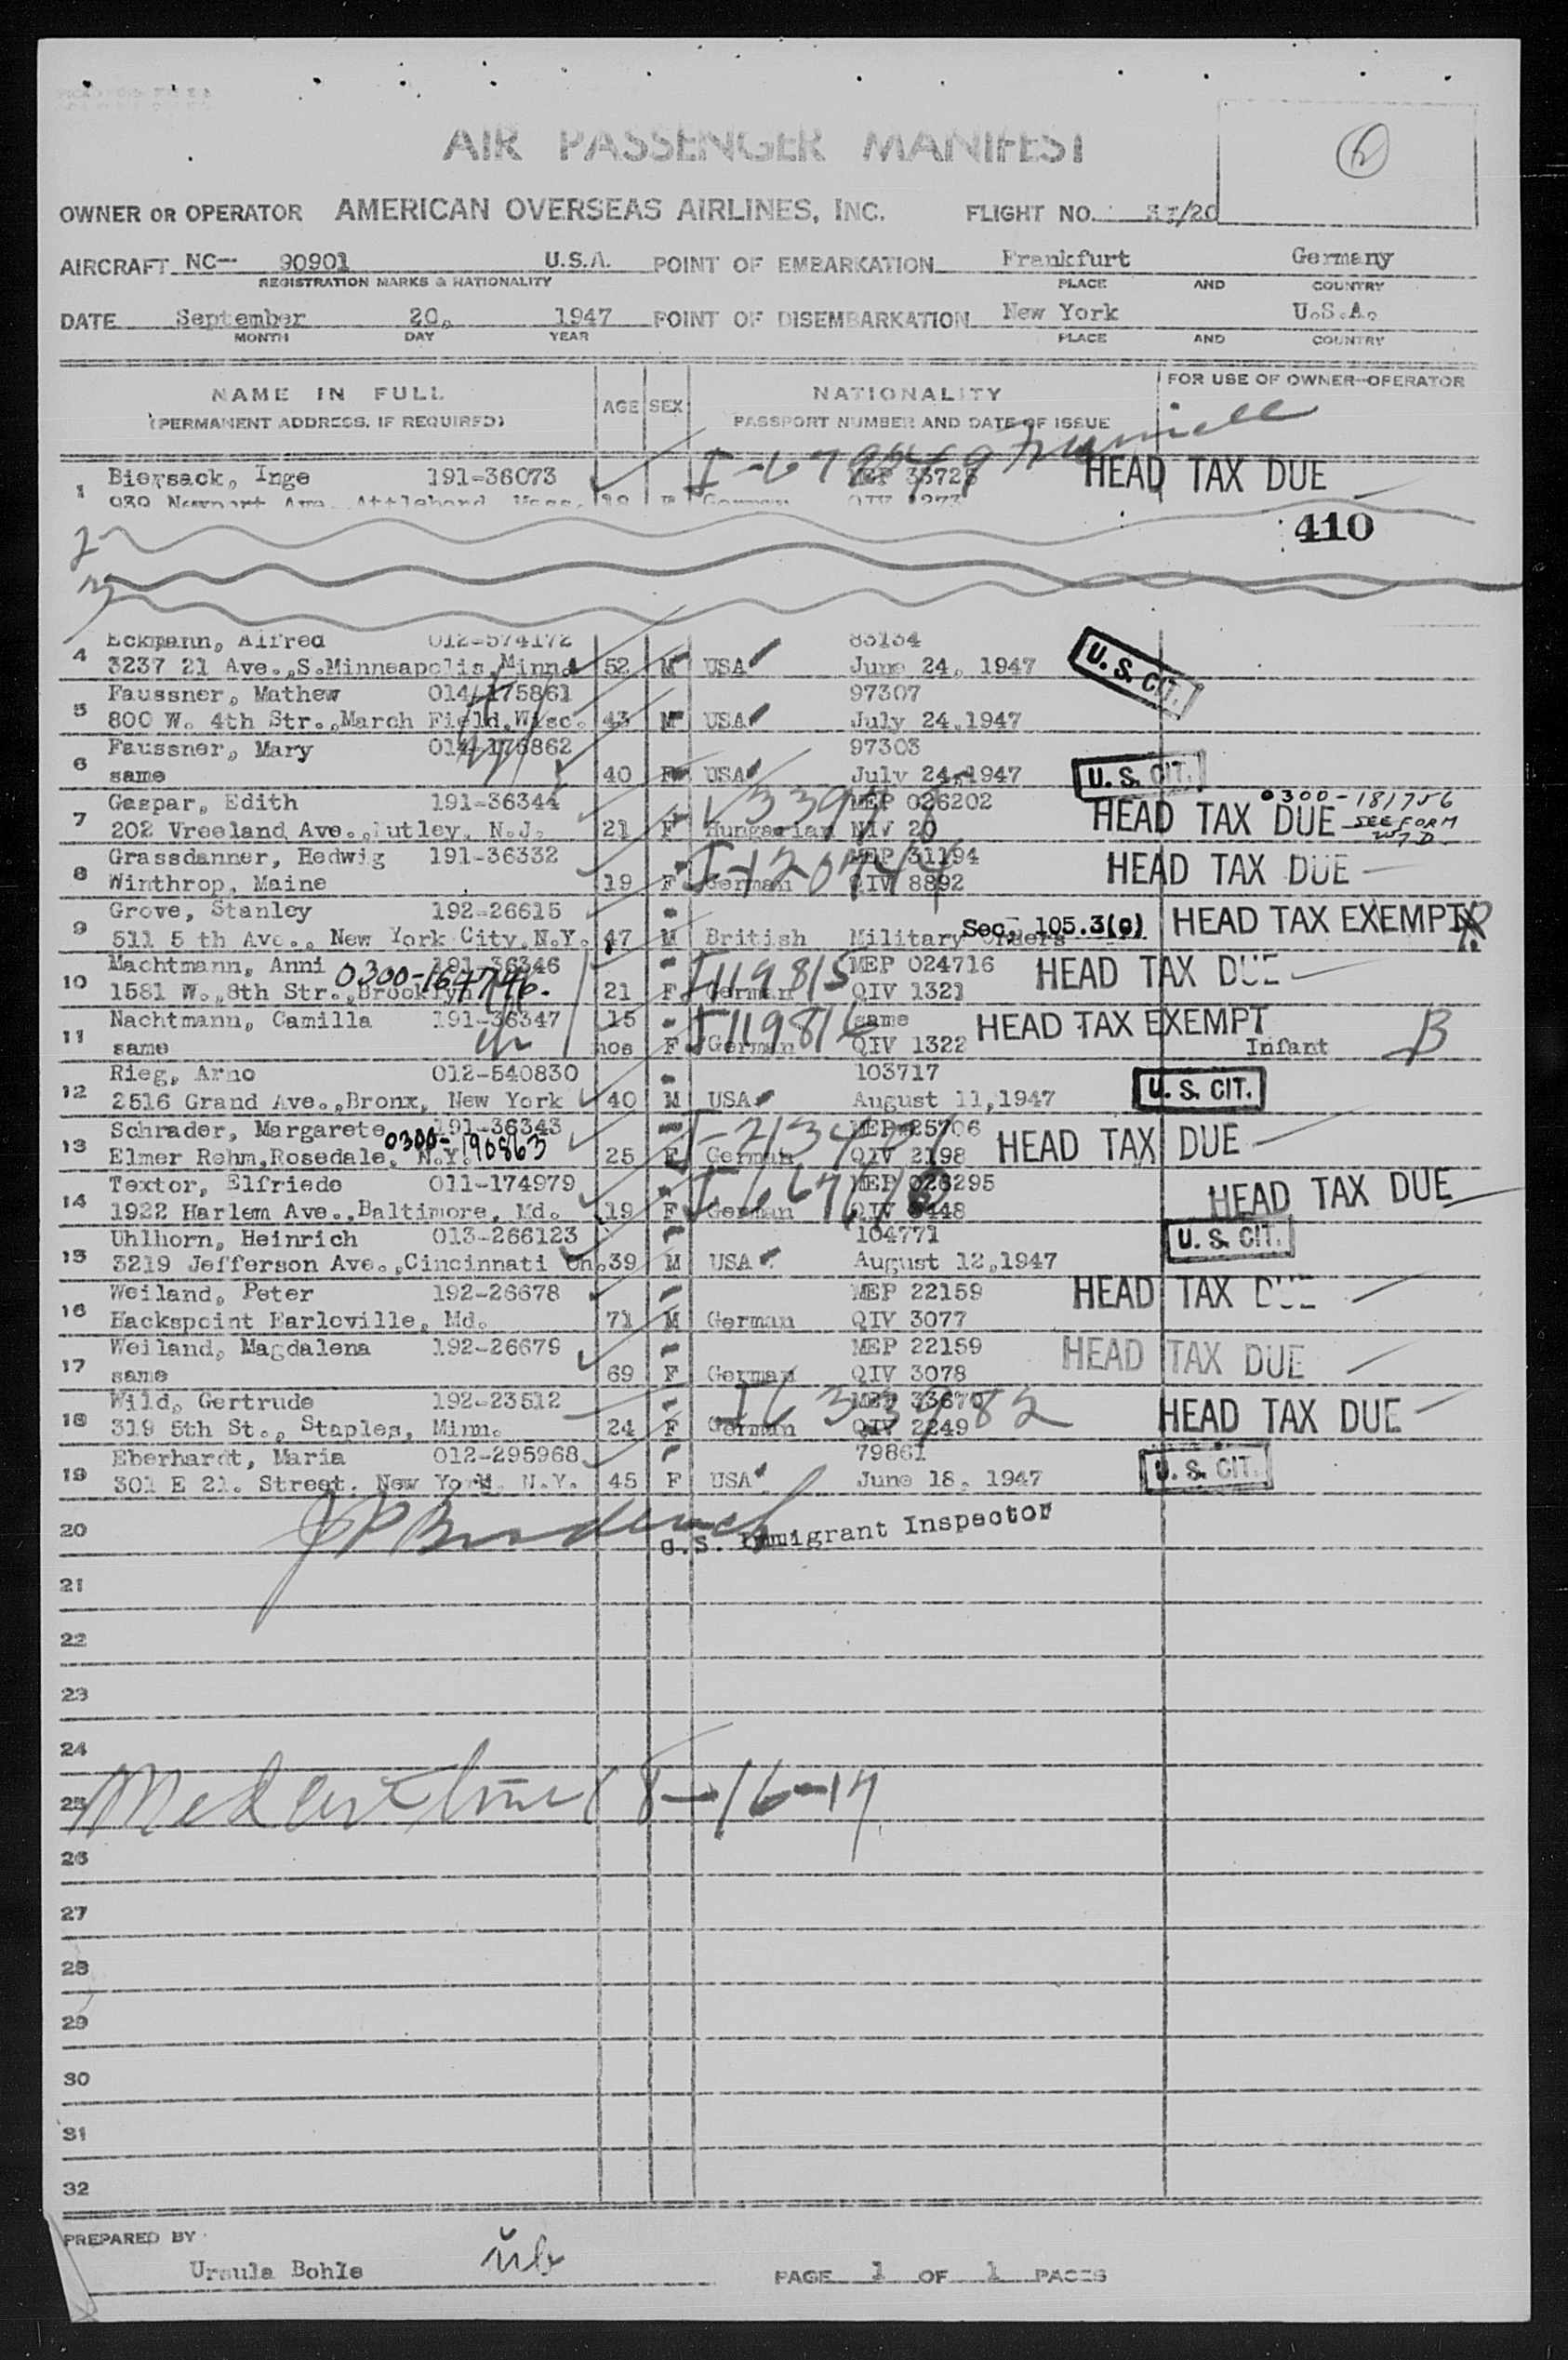 AIR PASSENGER MANIFEST
OWNER OR OPERATOR AMERICAN OVERSEAS AIRLINES, INC. FLIGHT NO. /20
AIRCRAFT NC-- 90901 U.S.A. POINT OF EMBARKATION Frankfurt Germany
REGISTRATION MARKS & NATIONALITY PLACE AND COUNTRY
DATE September 20, 1947 POINT OF DISEMBARKATION New York U.S.A.
MONTH DAY YEAR PLACE AND COUNTRY
NAME IN FULL AGE SEX NATIONALITY FOR USE OF OWNER-OPERATOR
(PERMANENT ADDRESS, IF REQUIRED) PASSPORT NUMBER AND DATE OF ISSUE
1 Biersack, Inge 191-36073 HEAD TAX DUE
939 Newport Ave., Attlebord, Mass. 18 F German QIV 1273
2 410
3
4 Eckmann, Alfred 012-574172 83134
3237 21 Ave.,S.Minneapolis,Minn. 52 M USA June 24, 1947 U. S. CIT.
5 Faussner, Mathew 014-175861 97307
800 W. 4th Str.,March Field,Wisc. 43 M USA July 24,1947
6 Faussner, Mary 014-175862 97303
same 40 F USA July 24,1947 U. S. CIT.
7 Gaspar, Edith 191-36344 MEP 026202 0300-181756
202 Vreeland Ave.,Nutley, N.J. 21 F Hungarian NIV 20 HEAD TAX DUE SEE FORM 257 D.
8 Grassdanner, Hedwig 191-36332 MEP 31194 HEAD TAX DUE
Winthrop, Maine 19 F German QIV 8892
9 Grove, Stanley 192-26615 Sec. 105.3(c) HEAD TAX EXEMPT
511 5 th Ave., New York City,N.Y. 47 M British Military Orders
10 Machtmann, Anni 191-36346 0300-164746. I119815 MEP 024716 HEAD TAX DUE
1581 W.,8th Str.,Brooklyn 21 F German QIV 1321
11 Nachtmann, Camilla 191-36347 15 I119816 same HEAD TAX EXEMPT
same mos F German QIV 1322 Infant B
12 Rieg, Arno 012-540830 103717
2516 Grand Ave.,Bronx, New York 40 M USA August 11,1947 U. S. CIT.
13 Schrader, Margarete 191-36343 0300-190863 MEP 25706 HEAD TAX DUE
Elmer Rehm,Rosedale, N.Y. 25 F German QIV 2198
14 Textor, Elfriede 011-174979 MEP 026295 HEAD TAX DUE
1922 Harlem Ave.,Baltimore, Md. 19 F German QIV
15 Uhlhorn, Heinrich 013-266123 104771 U. S. CIT.
3219 Jefferson Ave.,Cincinnati Oh. 39 M USA August 12,1947
16 Weiland, Peter 192-26678 MEP 22159 HEAD TAX DUE
Hackspoint Earleville, Md. 71 M German QIV 3077
17 Weiland, Magdalena 192-26679 MEP 22159 HEAD TAX DUE
same 69 F German QIV 3078
18 Wild, Gertrude 192-23512 MEP 33670 HEAD TAX DUE
319 5th St., Staples, Minn. 24 F German QIV 2249
19 Eberhardt, Maria 012-295968 79861 U. S. CIT.
301 E 21. Street, New York, N.Y. 45 F USA June 18, 1947
20 U.S. Immigrant Inspector
21
22
23
24
25
26
27
28
29
30
31
32
PREPARED BY
Ursula Bohle üb PAGE 1 OF 1 PAGES